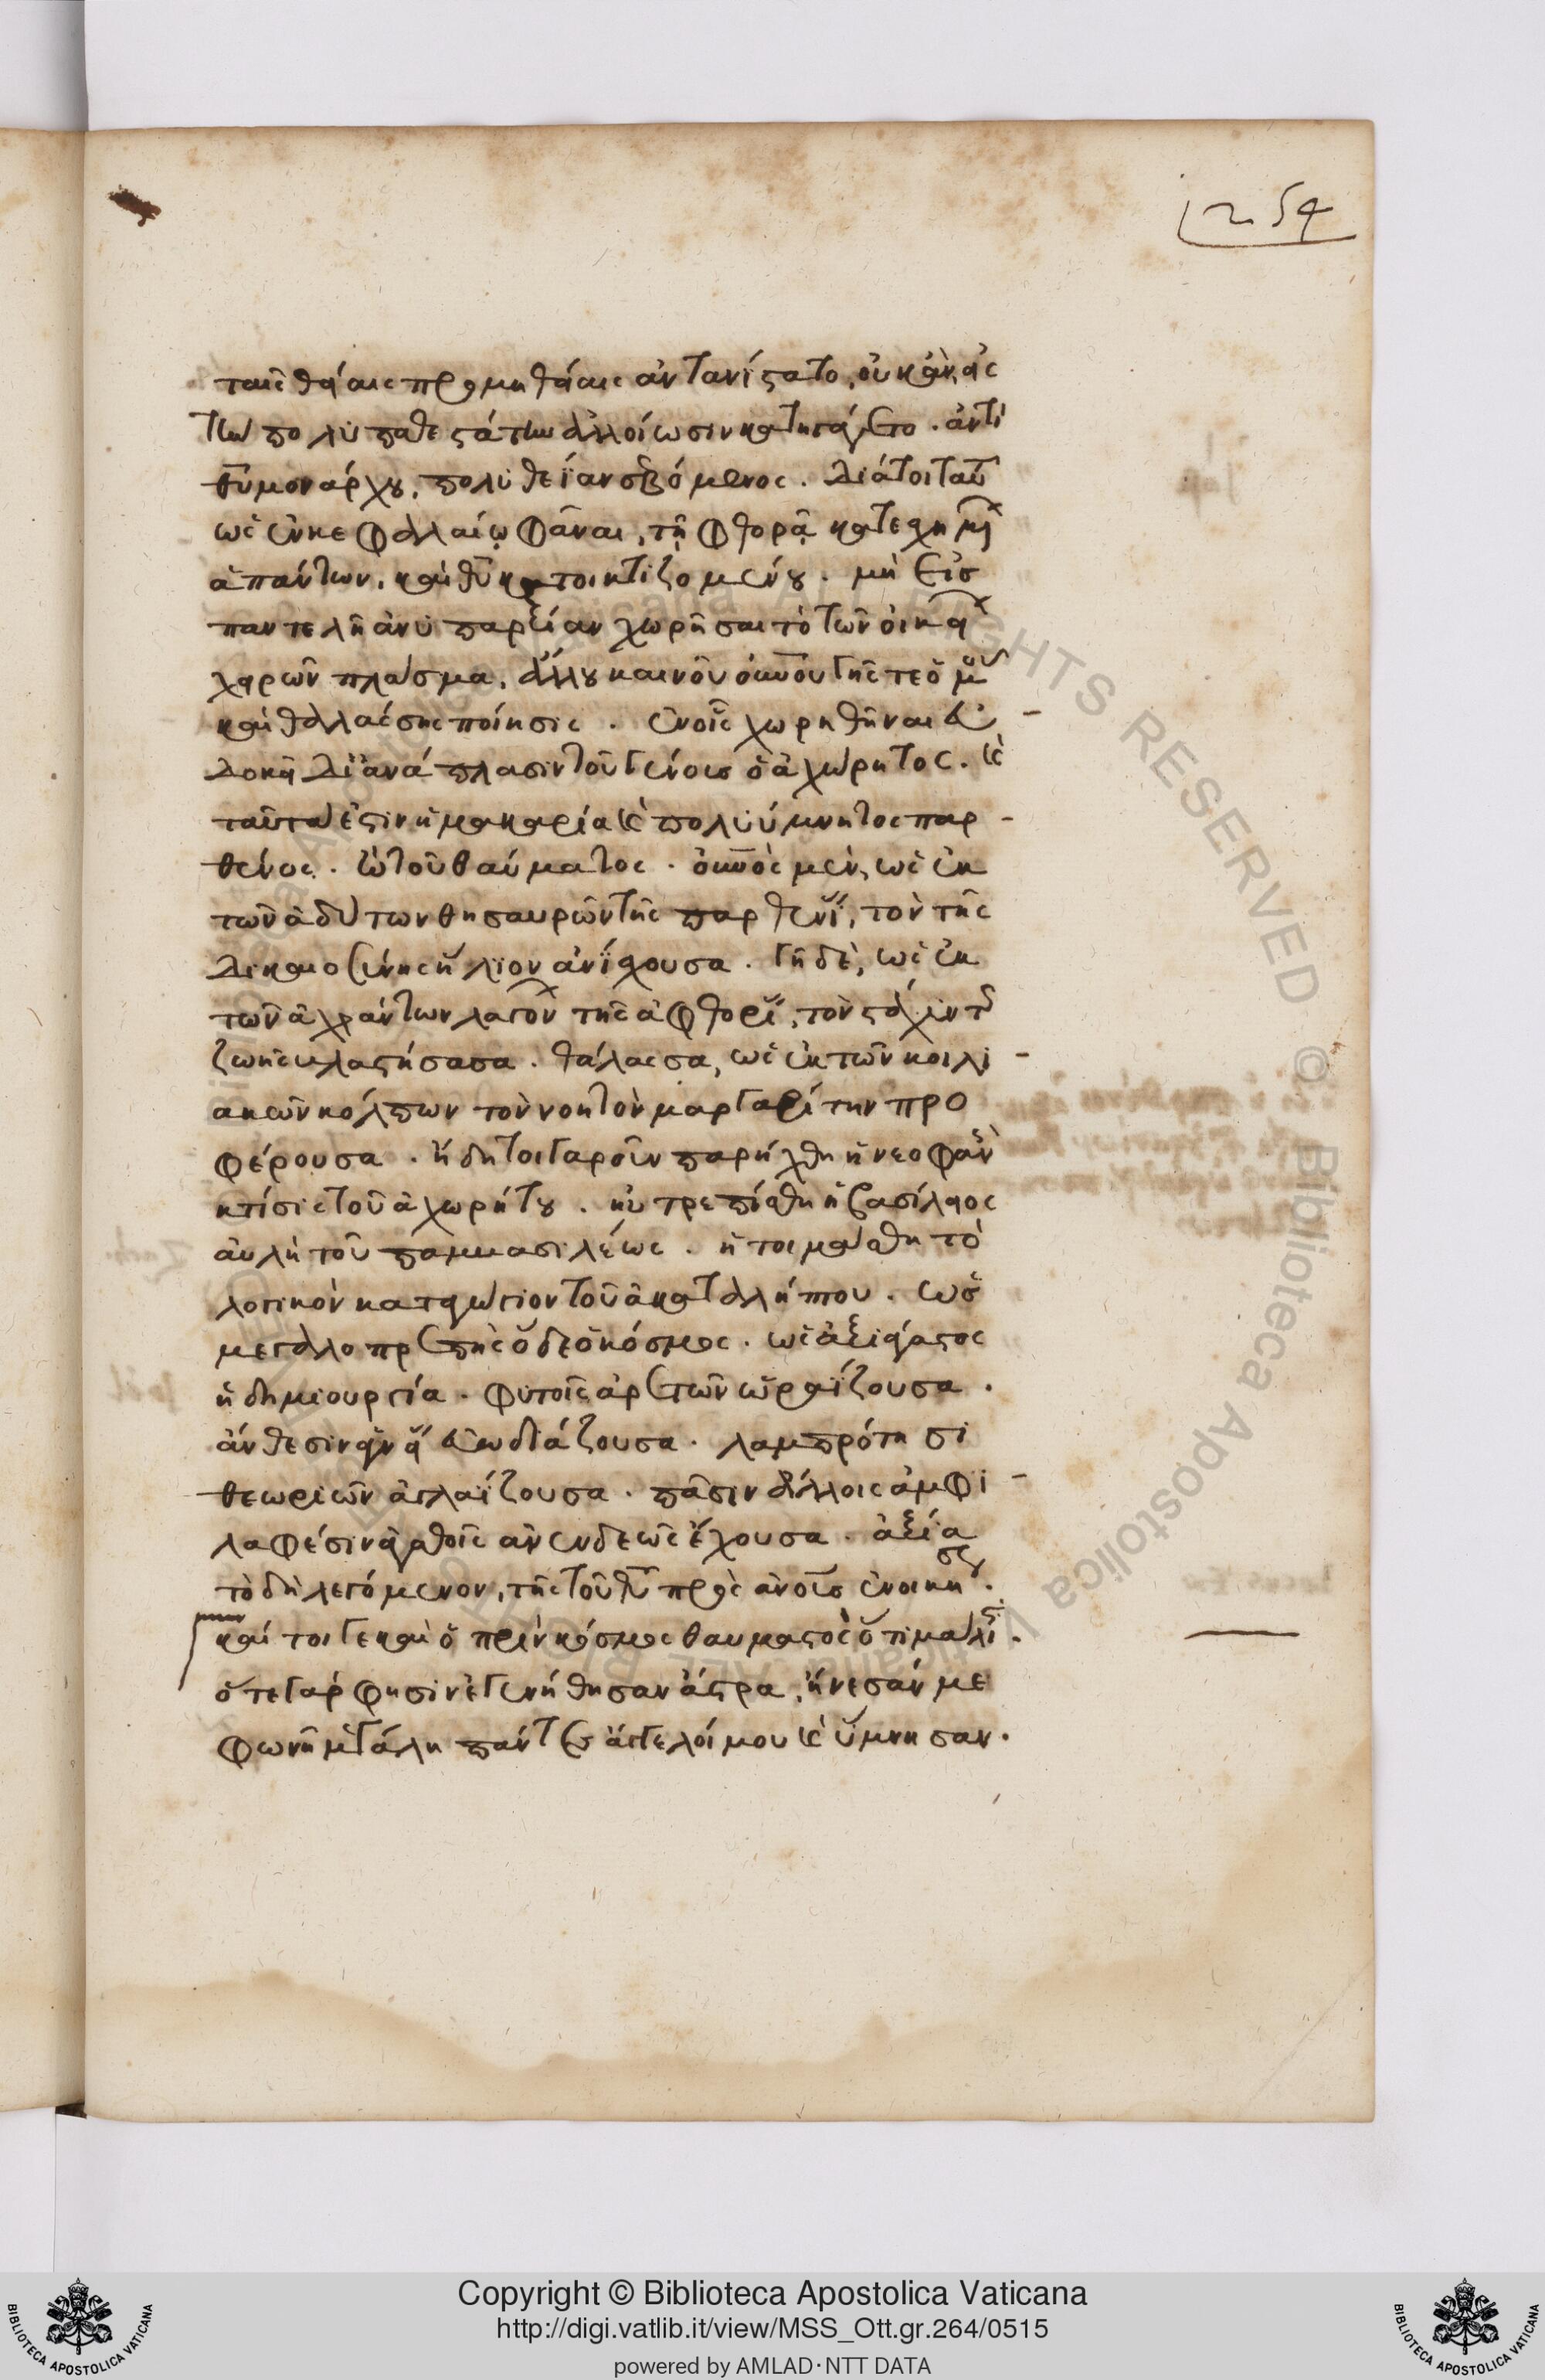 254
ταῖς θείαις προμηθείαις ἀντανίστατο, οὐκ ἂν εἰς
τὴν πολυπαθεστάτην ἀλλοίωσιν κατηνέγκτο. ἀντὶ
θῦ μονάρχου, πολυθεΐαν σεβόμενος. διάτοι ταῦτα
ὡς ἐν κεφαλαίῳ φᾶναι, τῇ φθορᾷ
ἁπάντων, καὶ θῦ κατοικτιζομένου. μὴ εἰς
παντελῆ ἀνυπαρξίαν χωρῆσαι τὸ τῶν οἰκείων
χειρῶν πλάσμα, ἄλλου καινοῦ οὐνοῦ γῆς τε ὁμοῦ
καὶ θαλάσσης ποίησις. ἐν οἷς χωρηθῆναι εὐ
δοκεῖ δι' ἀνάπλασιν τοῦ γένους ὁ ἀχώρητος. καὶ
ταῦτα ἐστιν ἡ μακαρία καὶ πολυύμνητος παρ-
θένος. ὢ τοῦ θαύματος. οὐνὸς μὲν, ὡς ἐκ
τῶν ἀδύτων θησαυρῶν τῆς παρθενίας, τὸν τῆς
δικαιοσύνης ἥλιον ἀνίσχουσα. γῆ δὲ, ὡς ἐκ
τῶν ἀχράντων λαγόνων τῆς ἀφθορίας, τὸν στάχυν τῆς
ζωῆς βλαστήσασα. θάλασσα, ὡς ἐκ τῶν κοιλι-
ακῶν κόλπων τὸν νοητὸν μαργαρίτην προ
φέρουσα. ἤδη τοιγαροῦν παρήχθη ἡ νεοφανὴς
κτίσις τοῦ ἀχωρήτου. ηὐτρεπίσθη ἡ βασίλειος
αὐλὴ τοῦ παμβασιλέως. ἡτοιμάσθη τὸ
λογικὸν καταγώγιον τοῦ ἀκαταλήπτου. ὡς
μεγαλοπρεπὴς ὅδε ὁ κόσμος. ὡς ἀξιάγαστος
ἡ δημιουργία. φυτοῖς ἀρετῶν ὡραΐζουσα.
ἄνθεσιν ἁγνείας εὐωδιάζουσα. λαμπρότησι
θεωριῶν ἀγλαΐζουσα. πᾶσιν ἄλλοις ἀμφι-
λαφέσιν ἀγαθοῖς ἀνενδεῶς ἔχουσα. ἀξία
τὸ δὴ λεγόμενον, τῆς τοῦ θῦ πρὸς ἀνους ἐνοικήσεως.
καί τοι γε καὶ ὁ πρὶν κόσμος θαυμαστὸς ὅτι μάλιστα.
ὅτε γάρ φησιν ἐγενήθησαν ἄστρα, ᾔνεσάν με
φωνῇ μεγάλῃ πάντες ἄγγελοί μου καὶ ὕμνησαν.
Copyright © Biblioteca Apostolica Vaticana
http://digi.vatlib.it/view/MSS_Ott.gr.264/0515
powered by AMLAD·NTT DATA